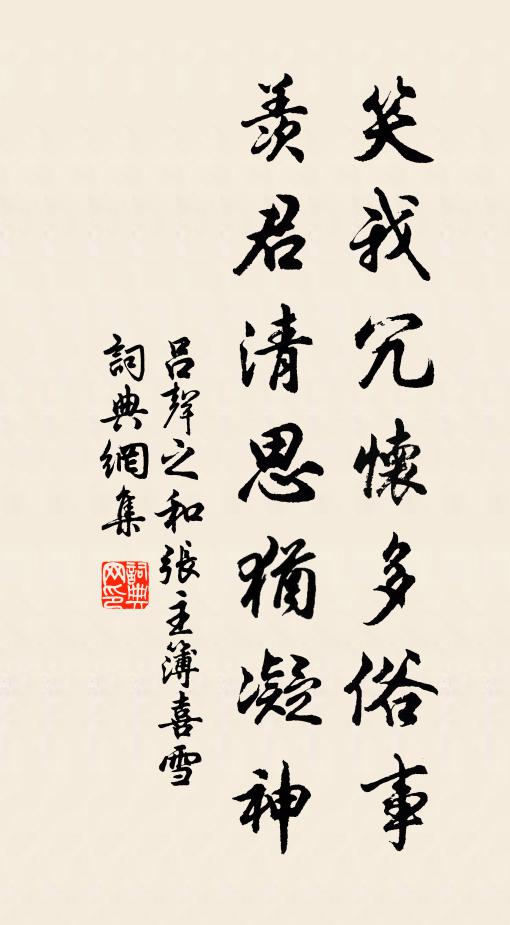 笑我冗懷多俗事
羨君清思猶凝神
呂聲之和張主簿喜雪
詞典網集
詞典网印